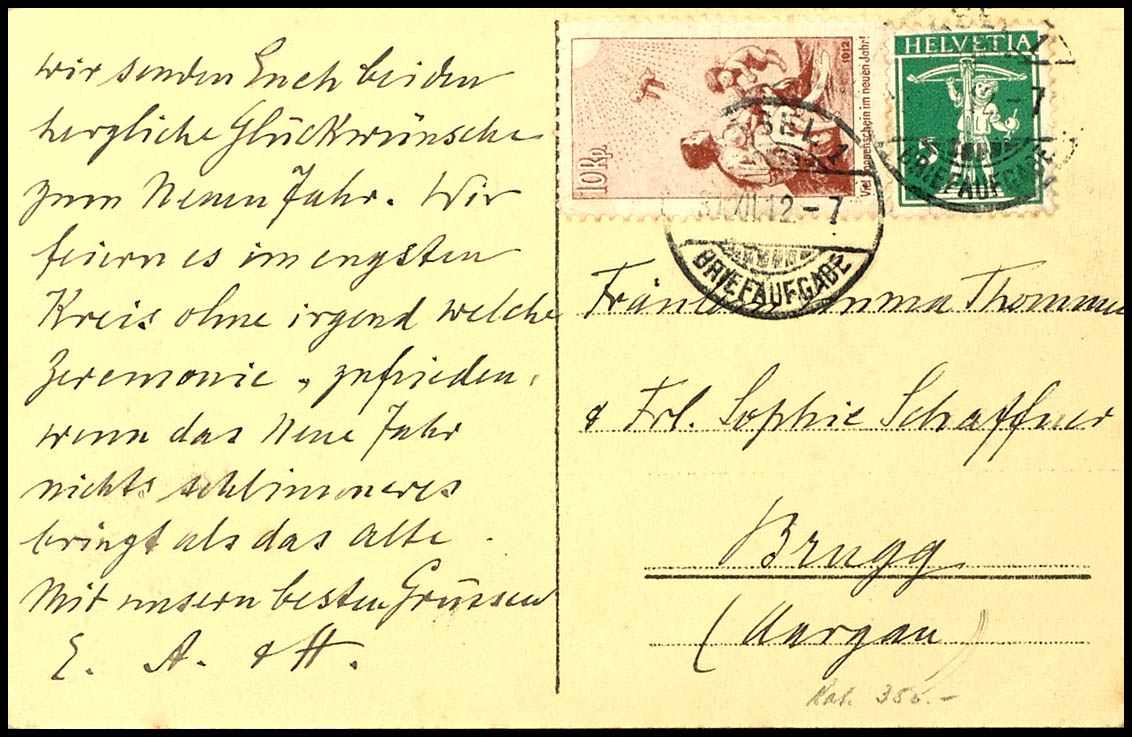 wir senden Euch beiden
herzliche Glückwünsche
zum Neuen Jahr. Wir
feiern es im engsten
Kreis ohne irgend welche
Zeremonie, zufrieden,
wenn das Neue Jahr
nichts schlimmeres
bringt als das alte.
Mit unsern besten Grüssen
E. A. & H.
10 Rp.
1912
Viel Sonnenschein im neuen Jahr!
HELVETIA
5
BASEL 1
XII.12-7
BRIEFAUFGABE
1
-7
BRIEFAUFGABE
Thommen
& Frl. Sophie Schaffner
Brugg
(Aargau)
Kat. 350.-